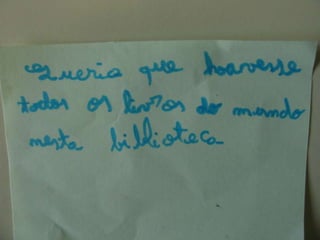 Queria que hoavesse
todos os livros do mundo
nesta biblioteca